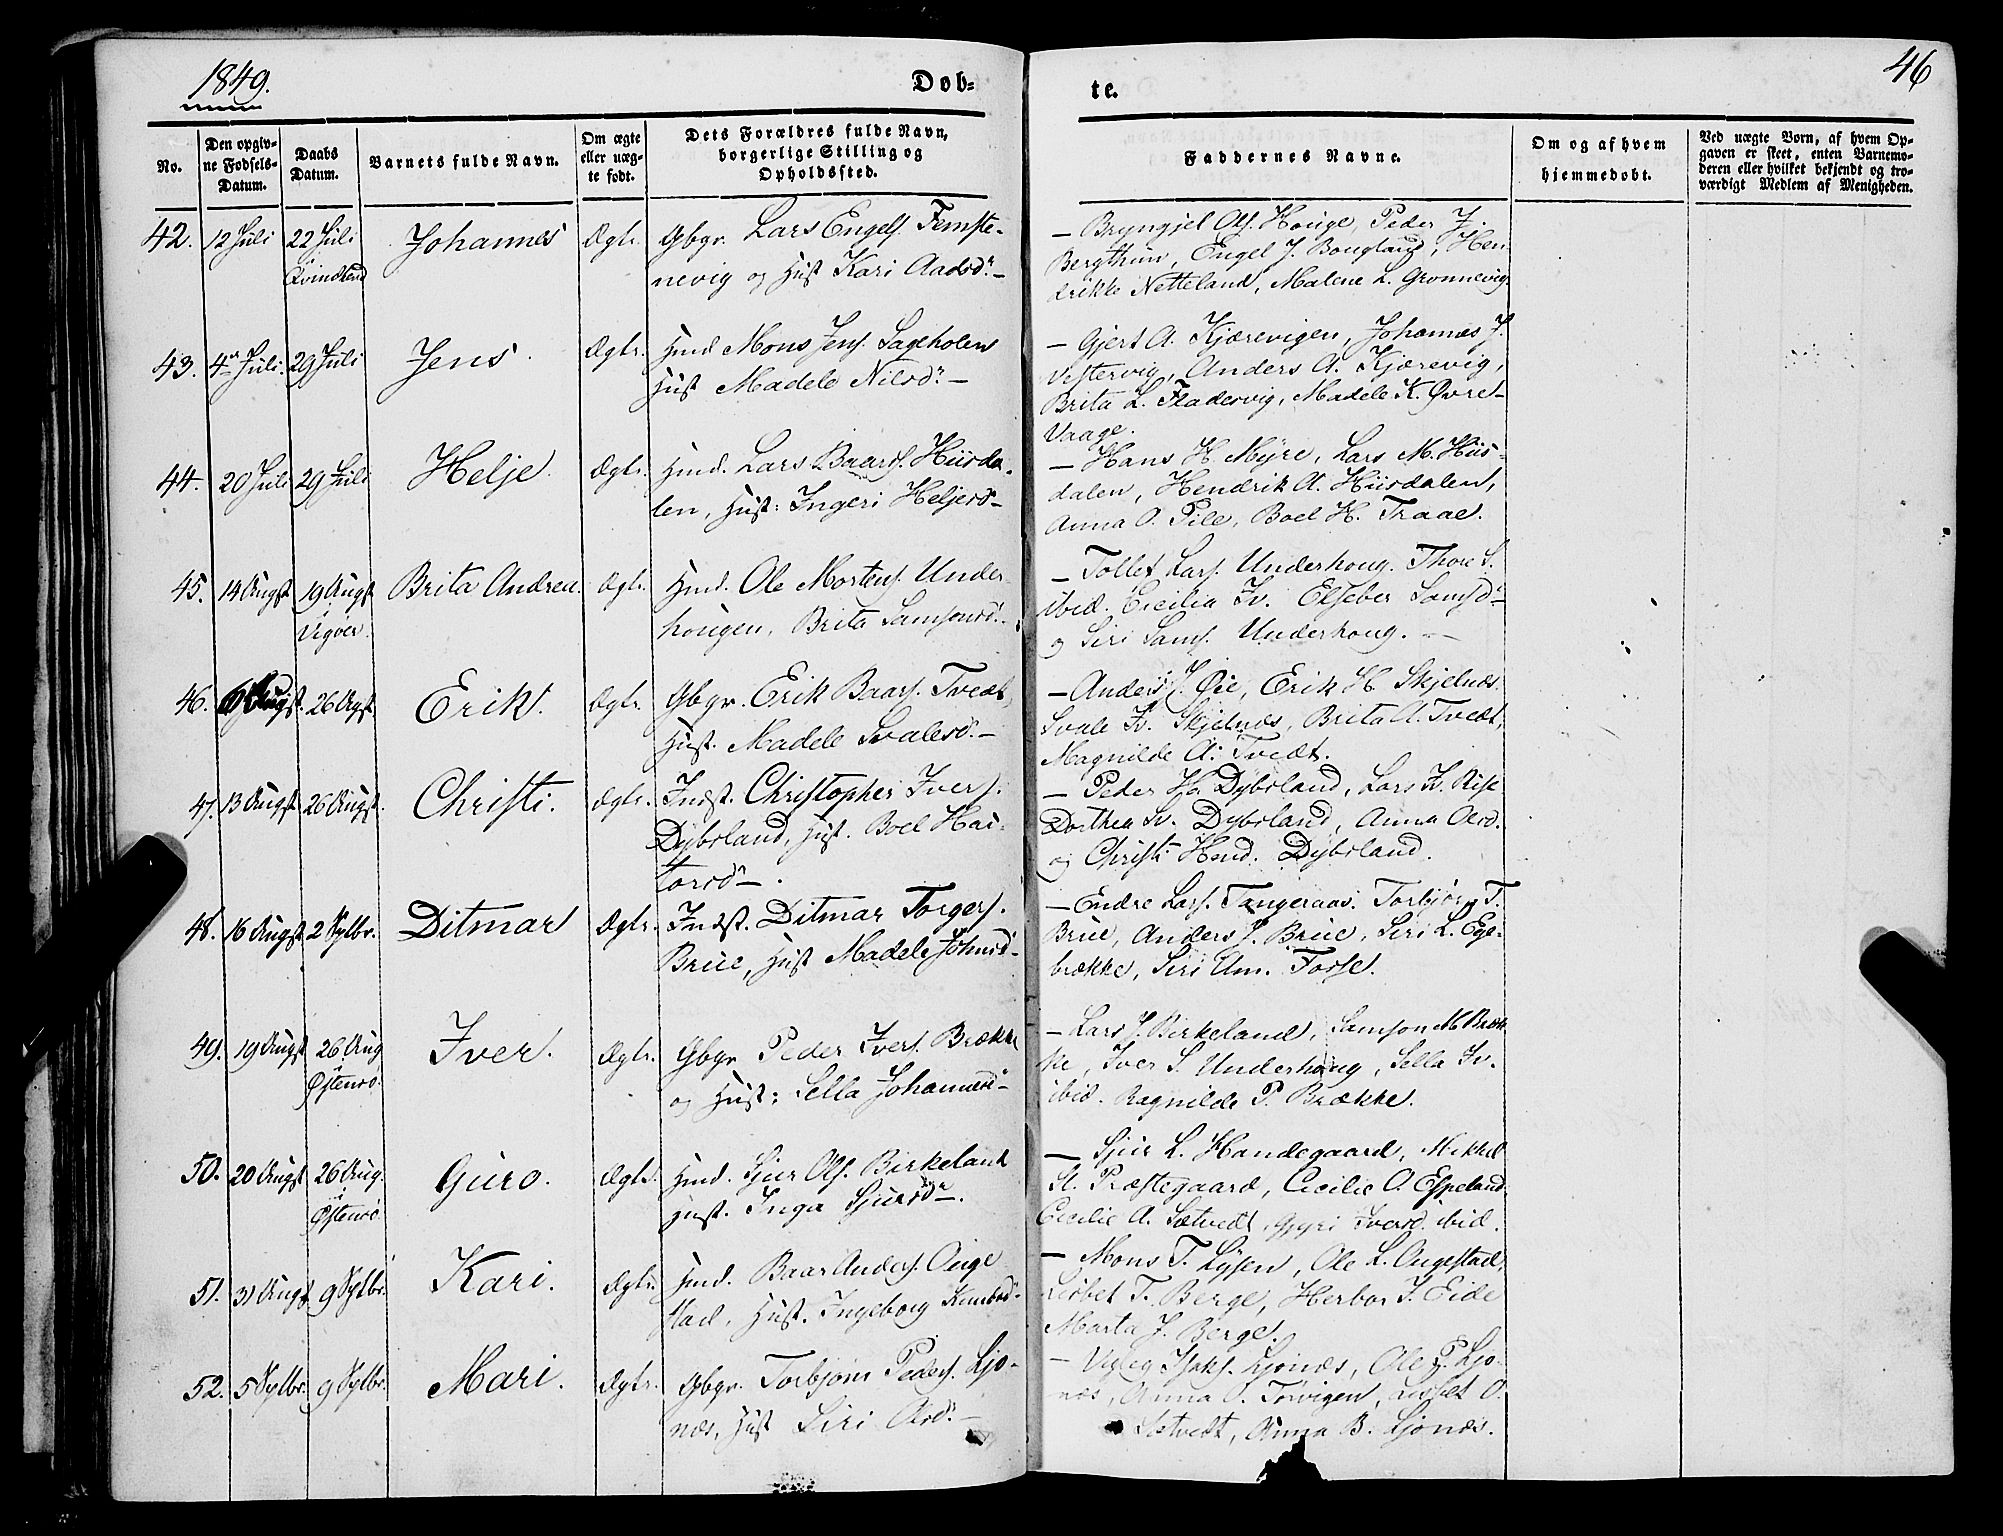 1849.
Døb-
te.
46
No.
Den opgiv-
ne Fødsels-
Datum.
Daabs
Datum.
Barnets fulde Navn.
Om ægte
eller uæg-
te født.
Dets Forældres fulde Navn,
borgerlige Stilling og
Opholdssted.
Faddernes Navne.
Om og af hvem
hjemmedøbt.
Ved uægte Børn, af hvem Op-
gaven er skeet, enten Barnemo-
deren eller hvilket bekjendt og tro-
værdigt Medlem af Menigheden.
42. 12 Juli 22 Juli Johannes Ægte. Gbgr. Lars Engels. Femste-
i Qvindherd nevig og Hust Kari Aadsd. –
– Bryngjel Ols. Houge, Peder J.
Bergthun, Engel J. Bougland, Hen-
drikke Netteland, Malene L. Grønnevig.
43. 4 Juli. 29 Juli Jens Ægte. Hmd Mons Jens. Sageholen
Hust Madele Nilsd. –
– Gjert A. Kjærevigen, Johannes J.
Vestervig, Anders A. Kjærevig,
Brita L. Fladervig, Madele K. Øvre-
Vaage.
44. 20 Juli 29 Juli Helje. Ægte. Hmd. Lars Baars. Huusda-
len, Hust: Ingeri Heljesd –
– Hans H. Myre, Lars M. Huus-
dalen, Hendrik A. Huusdalen,
Anna O. Pile, Boel H. Traae.
45. 14 Augst 19 Augst Brita Andrea. Ægte. Hmd. Ole Mortens. Under-
i Vigøer. hougen, Brita Samsonsd. –
– Tollef Lars. Underhoug. Thore S.
ibid. Cecilia Iv. Elseber Samsd –
og Siri Sams. Underhoug. –
46. Augst. 26 Agst Erik. Ægte. Gbgr. Erik Baars. Tvedt,
Hust. Madele Svalesd. –
– Anders J. Øie, Erik H. Skjelnæs
Svale Iv. Skjelnæs, Brita A. Tvedt,
Magnilde A. Tvedt.
47. 13 Augst 26 Augst. Christi. Ægte. Indst. Christopher Ivers.
Dybsland, Hust. Boel Hal-
torsd – .
– Peder Ha Dybsland, Lars Iv. Rise
Dorthea Iv. Dybsland, Anna Olsd.
og Christi Hend. Dybsland.
48. 16 Augst 2 Sptbr. Ditmar Ægte. Indst. Ditmar Torgers.
Brue, Hust Madele Johnsd –
– Endre Lars. Tangeraas. Torbjørn T.
Brue, Anders J. Brue, Siri L. Ege-
brække, Siri Am. Torse.
49. 19 Augst 26 Aug Iver. Ægte. Gbgr Peder Ivers. Brække
i Østensø. og Hust: Sella Johannesd –
– Lars J. Birkeland, Samson M Bræk-
ke, Iver S. Underhoug, Sella Iv.
ibid. Ragnilde P. Brække.
50. 20 Augst 26 Aug. Guro. Ægte. Hmd. Sjur Ols. Birkeland
i Østensø. Hust. Inga Sjursd.
– Sjur L. Handegaard, Mikkel
St. Præstegaard, Cecilie O. Espeland
Cecilie A. Sætvedt, Gyri Iversd. ibid.
51. 31 Augst 9 Sptbr Kari. Ægte. Hmd. Baar Anders. Ange
stad, Hust. Ingeborg Knudsd –
– Mons T. Lysen, Ole L. Angestad,
Lisbet T. Berge, Herbor J. Eide
Marta J. Berge.
52. 5 Sptbr. 9 Sptbr. Mari. Ægte. Gbgr. Torbjørn Peders. Ljo-
næs, Hust Siri Olsd. –
– Vigleg Isaks. Ljonæs, Ole P. Ljo-
næs, Anna O. Torvigen, Lisbet O.
Sætvedt, Anna B. Ljonæs.